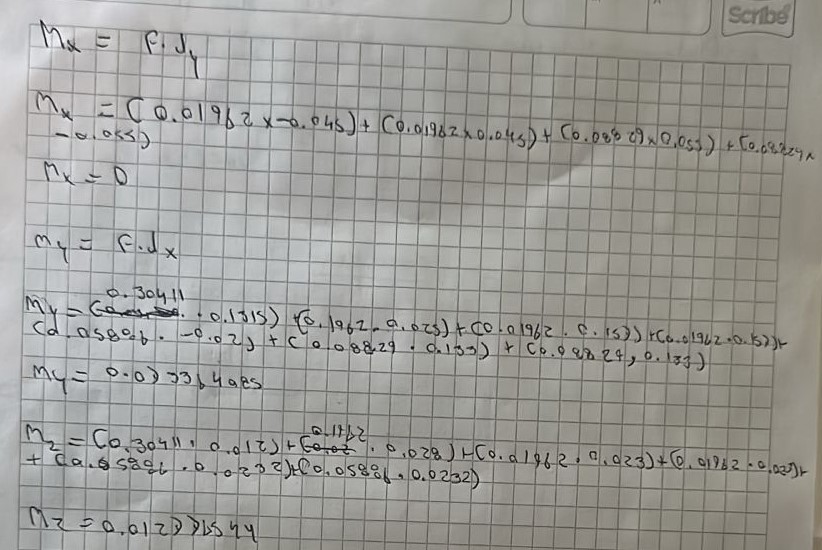 Scribe
Mx = F.dy
Mx = (0.01962 x -0.045) + (0.01962 x 0.045) + (0.08829 x 0.055) + (0.08829 x
-0.055)
Mx = 0
My = F.dx
0.30411
My = ( . 0.1315) (0.1962 . 0.025) + (0.01962 . 0.15 ) + (0.01962 . 0.15 ) +
(0.05886 . -0.02) + (0.08829 . 0.133) + (0.08829, 0.133)
My = 0.0
0.1962
Mz = (0.30411 . 0.012) + ( . 0.028) + (0.01962 . 0.023) + (0.01962 . 0.023) +
+ (0.05886 . 0.0232) + (0.05886 . 0.0232)
Mz = 0.012